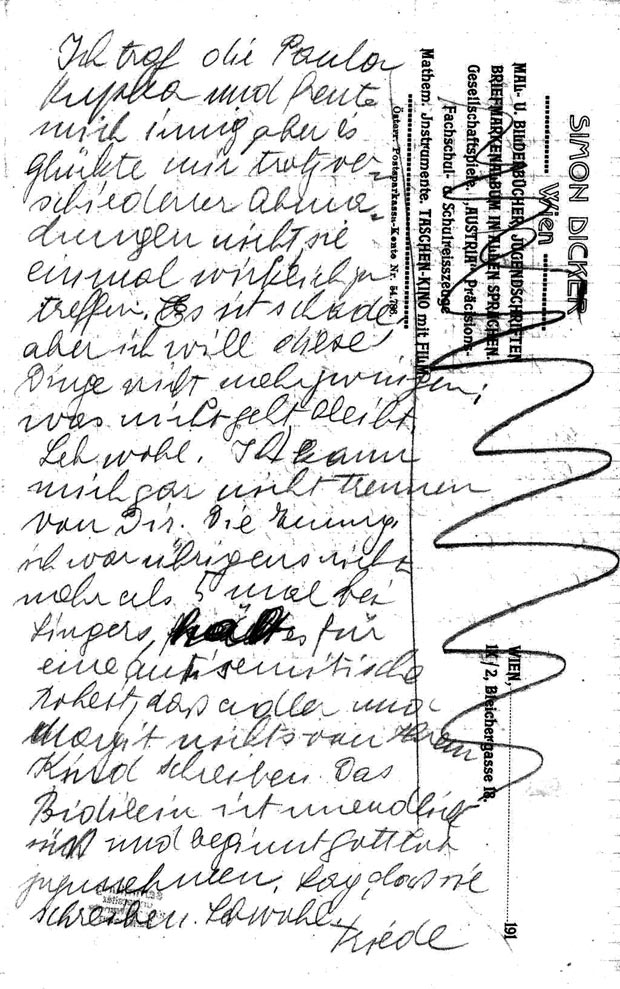 Ich traf die Paula
Kupka und freute
mich innig aber es
glückte mir trotz ver-
schiedener Abma-
chungen nicht, sie
einmal wirklich zu
treffen. Es ist schade
aber ich will diese
Dinge nicht mehr zwingen;
was nicht geht bleibt.
Leb wohl. Ich kann
mich gar nicht trennen
von Dir. Die
ich war übrigens nicht
mehr als 5 mal bei
Singers, hält es für
eine antisemitische
Roheit, dass adler und
Margit nichts von
Kind schreiben. Das
Bidilein ist unendlich
süß und beginnt gottlob
zuzunehmen. Sag, dass sie
schreiben. Lebwohl.
Friedl
SIMON DICKER
Wien
MAL- U. BILDERBÜCHER, JUGENDSCHRIFTEN
BRIEFMARKENALBUM IN ALLEN SPRACHEN.
Gesellschaftspiele. „AUSTRIA“ Präcisions-
Fachschul- & Schulreisszeuge
Mathem. Jnstrumente. TASCHEN-KINO mit FILM
Österr. Postsparkassa-Konto Nr. 54.796.
WIEN, 191
IX/2, Bleichergasse 18.